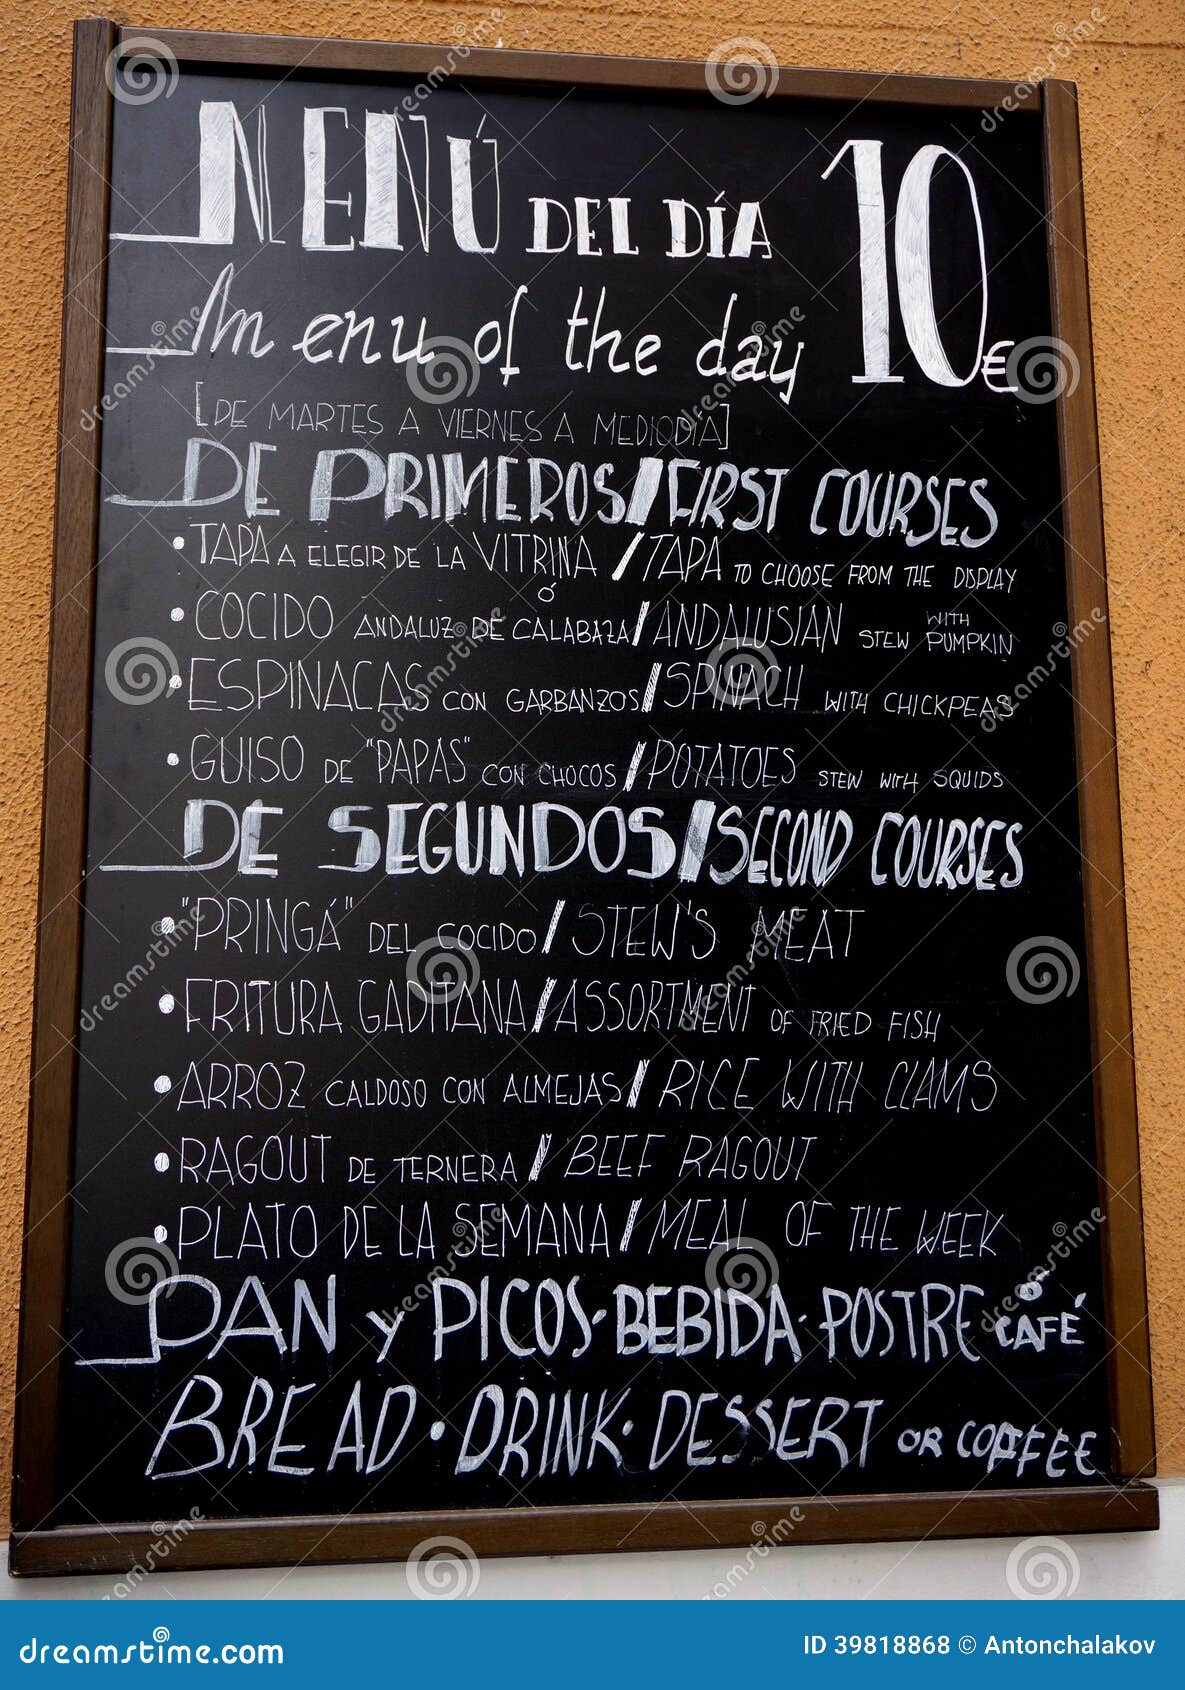 MENÚ DEL DÍA 10€
Menu of the day
[DE MARTES A VIERNES A MEDIODIA]
DE PRIMEROS/FIRST COURSES
• TAPA A ELEGIR DE LA VITRINA / TAPA TO CHOOSE FROM THE DISPLAY
ó
• COCIDO ANDALUZ DE CALABAZA/ANDALUSIAN STEW WITH PUMPKIN
• ESPINACAS CON GARBANZOS/SPINACH WITH CHICKPEAS
• GUISO DE "PAPAS" CON CHOCOS/POTATOES STEW WITH SQUIDS
DE SEGUNDOS/SECOND COURSES
• "PRINGÁ" DEL COCIDO/STEW'S MEAT
• FRITURA GADITANA/ASSORTMENT OF FRIED FISH
• ARROZ CALDOSO CON ALMEJAS/RICE WITH CLAMS
• RAGOUT DE TERNERA/BEEF RAGOUT
• PLATO DE LA SEMANA/MEAL OF THE WEEK
PAN y PICOS·BEBIDA·POSTRE ó CAFÉ
BREAD·DRINK·DESSERT OR COFFEE
dreamstime.com
ID 39818868 © Antonchalakov